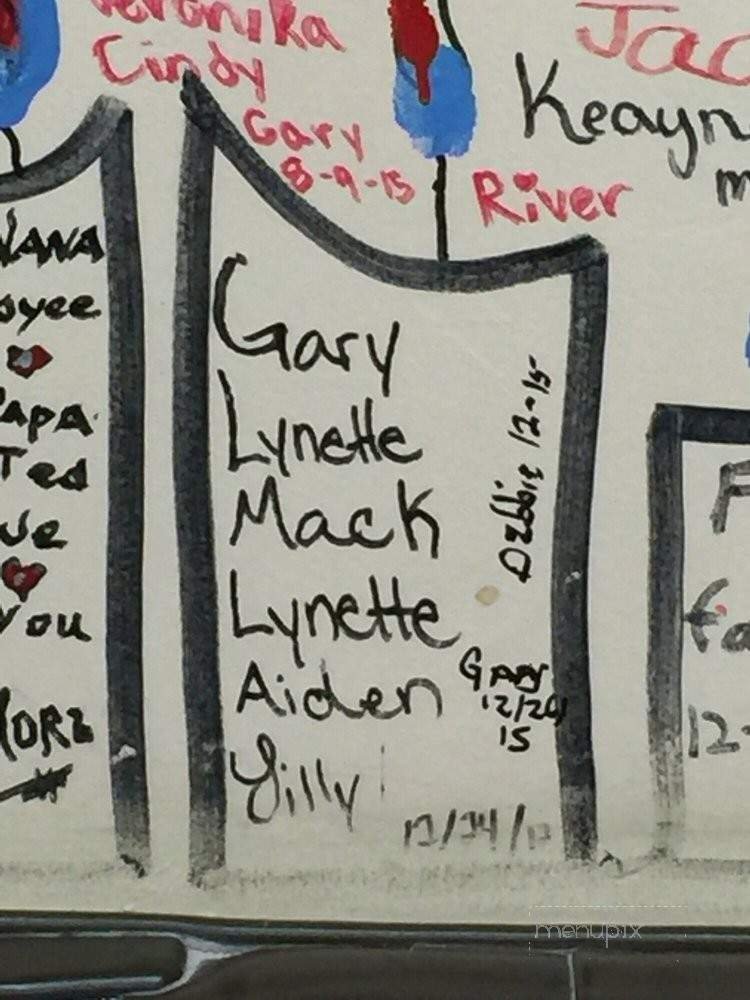 Veronika
Cindy
Gary
8-9-15
River
Keayn
NANA
oyee
PAPA
Ted
ve
You
MORE
Gary
Lynette
Mack
Lynette
Aiden
Lilly
Debbie 12-15
Gary
12/24
15
12/24/1
Jac
m
fa
12-
menupix